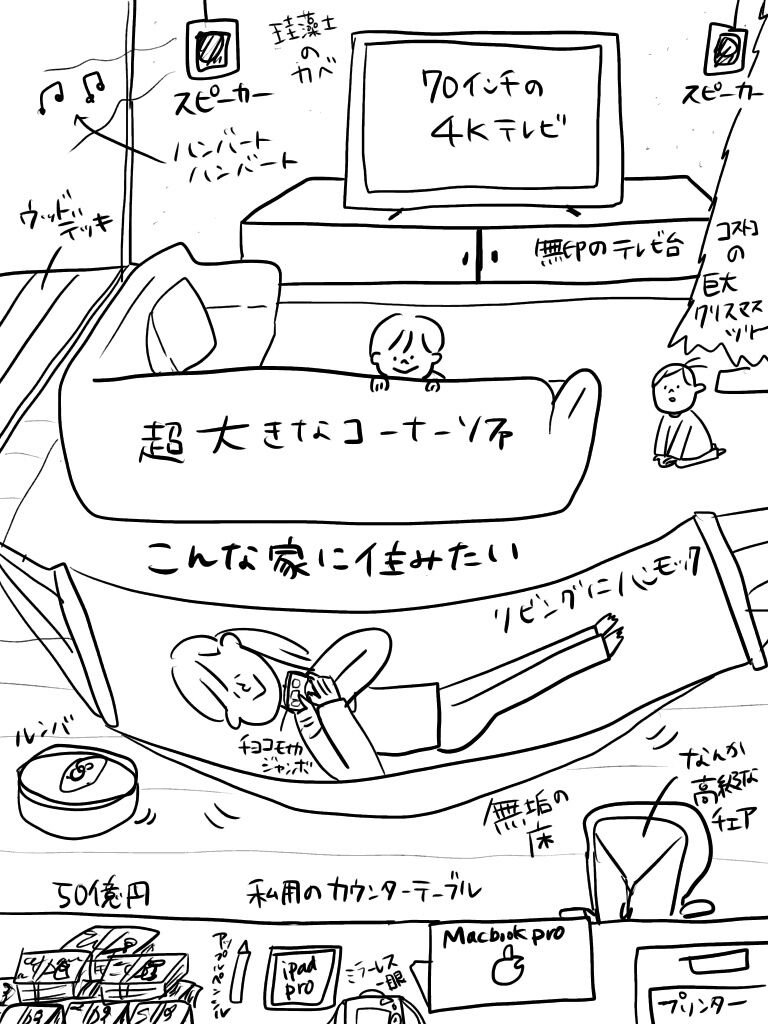 珪藻土
の
カベ
70インチの
4Kテレビ
スピーカー
スピーカー
ハンバート
ハンバート
ウッド
デッキ
無印のテレビ台
コストコ
の
巨大
クリスマス
ツリー
超大きなコーナーソファ
こんな家に住みたい
リビングにハンモック
チョコモナカ
ジャンボ
ルンバ
なんか
高級な
チェア
無垢の
床
50億円
私用のカウンターテーブル
アップルペンシル
iPad
pro
ミラーレス
一眼
Macbook pro
プリンター